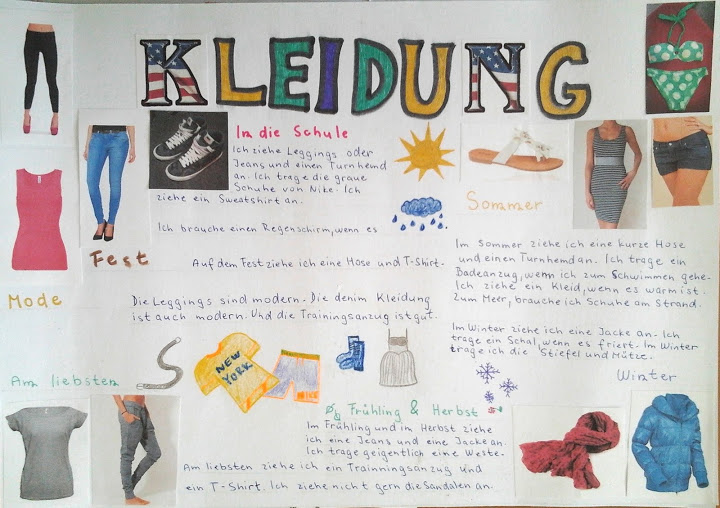 KLEIDUNG
In die Schule
Ich ziehe Leggings oder
Jeans und einen Turnhemd
an. Ich trage die graue
Schuhe von Nike. Ich
ziehe ein Sweatshirt an.
Ich brauche einen Regenschirm, wenn es
Fest
Auf dem Fest ziehe ich eine Hose und T-Shirt.
Mode
Die Leggings sind modern. Die denim Kleidung
ist auch modern. Und die Trainingsanzug ist gut.
Sommer
Im Sommer ziehe ich eine kurze Hose
und einen Turnhemd an. Ich trage ein
Badeanzug, wenn ich zum Schwimmen gehe.
Ich ziehe ein Kleid, wenn es warm ist.
Zum Meer, brauche ich Schuhe am Strand.
Im Winter ziehe ich eine Jacke an. Ich
trage ein Schal, wenn es friert. Im Winter
trage ich die Stiefel und Mütze.
Winter
NEW
YORK
Am liebsten
Frühling & Herbst
Im Frühling und im Herbst ziehe
ich eine Jeans und eine Jacke an.
Ich trage geigentlich eine Weste.
Am liebsten ziehe ich ein Trainningsanzug und
ein T-Shirt. Ich ziehe nicht gern die Sandalen an.